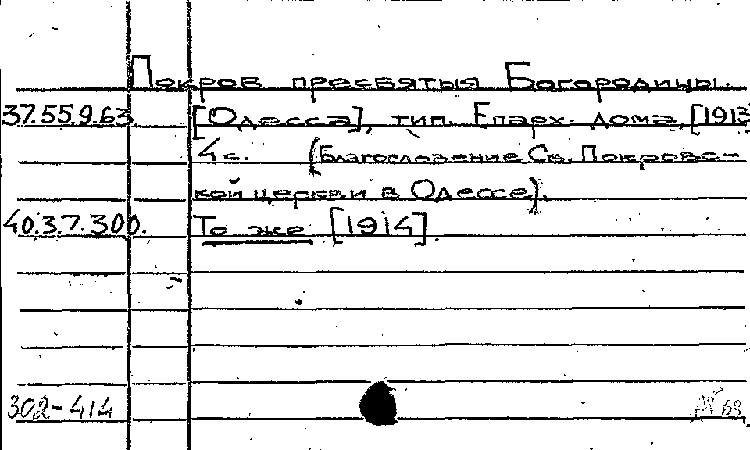 Покров пресвятыя Богородицы.
37.55.9.63 [Одесса], тип. Епарх. дома, [1913
4 с. (Благословение Св. Покровс-
кой церкви в Одессе).
40.3.7.300. То же [1914].
302-414